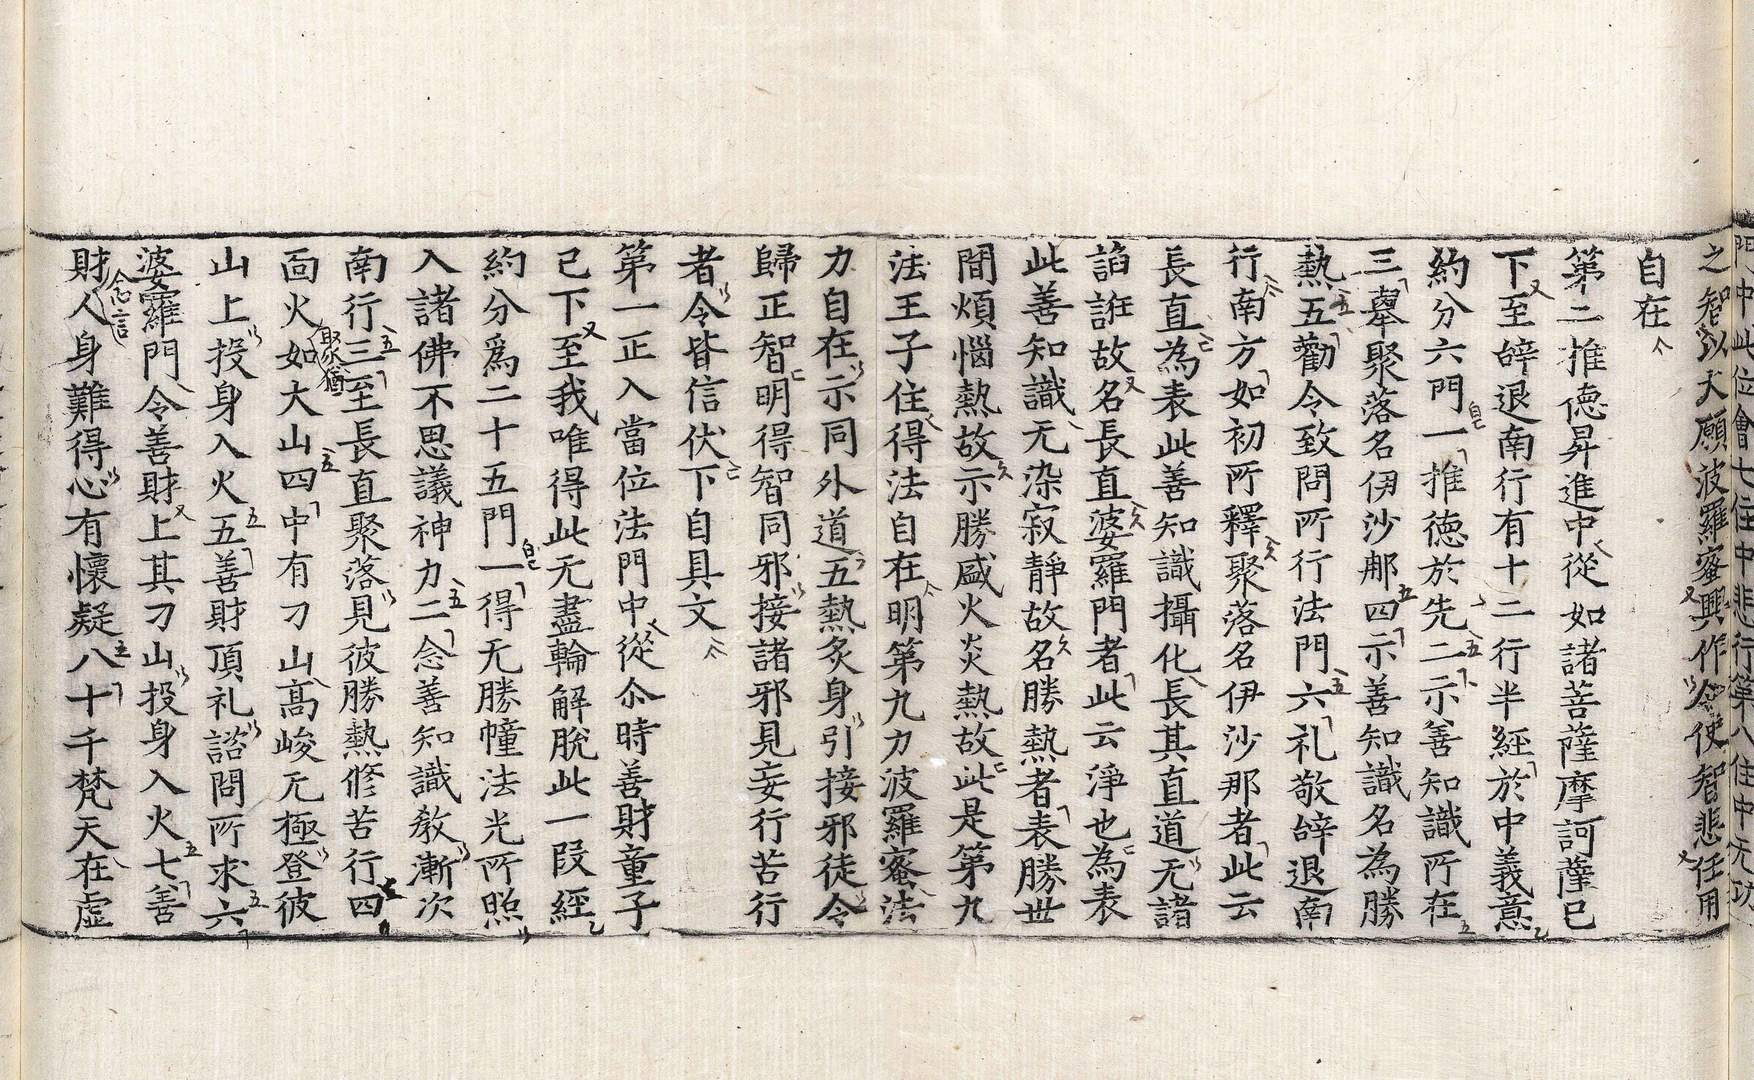 門中此位會七住中悲行第八住中无功
之智以大願波羅蜜興作令使智悲任用
自在
第二推德昇進中從如諸菩薩摩訶薩已
下至辝退南行有十二行半經於中義意
約分六門一推德於先二示善知識所在
三舉聚落名伊沙那四示善知識名為勝
熱五勸令致問所行法門六礼敬辝退南
行南方如初所釋聚落名伊沙那者此云
長直為表此善知識攝化長其直道无諸
諂誑故名長直婆羅門者此云淨也為表
此善知識无染寂靜故名勝熱者表勝世
間煩惱熱故示勝盛火炎熱故此是第九
法王子住得法自在明第九力波羅蜜法
力自在示同外道五熱炙身引接邪徒令
歸正智明得智同邪接諸邪見妄行苦行
者令皆信伏下自具文
第一正入當位法門中從尒時善財童子
已下至我唯得此无盡輪解脫此一段經
約分爲二十五門一得无勝幢法光所照
入諸佛不思議神力二念善知識教漸次
南行三至長直聚落見彼勝熱修苦行四
面火如大山四中有刀山高峻无極登彼
山上投身入火五善財頂礼諮問所求六
婆羅門令善財上其刀山投身入火七善
財人身難得心有懷疑八十千梵天在虛